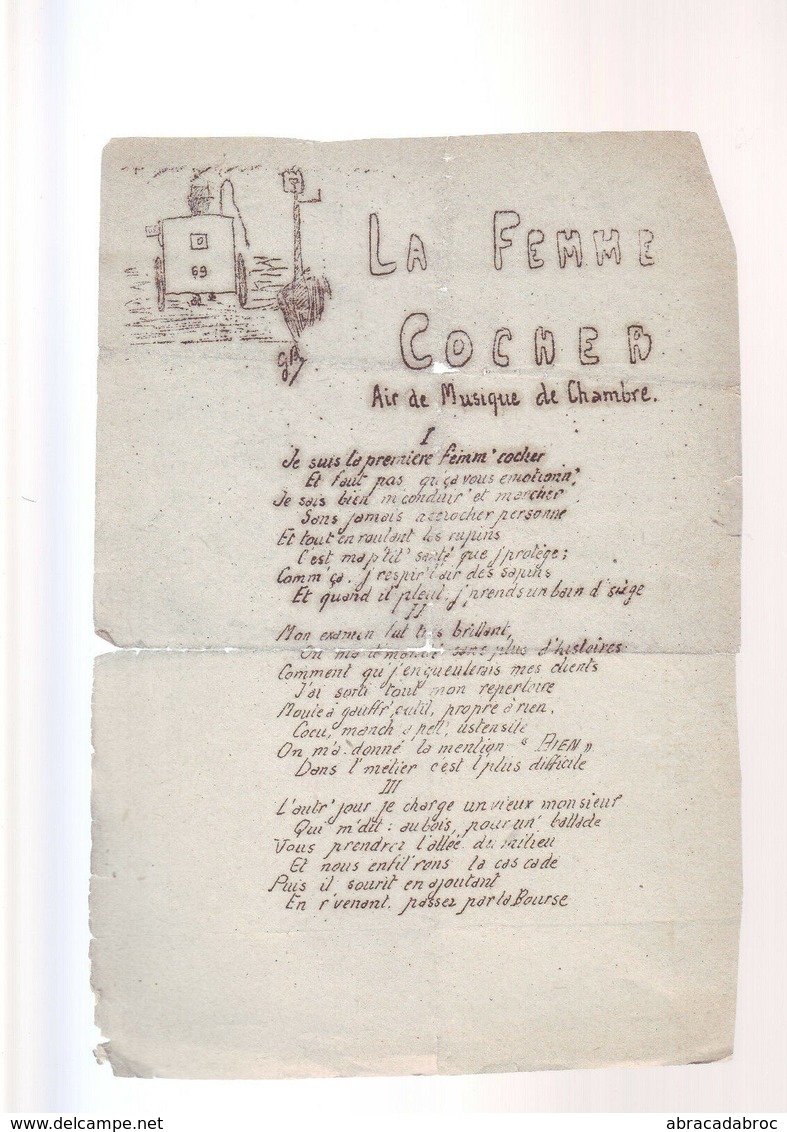 69
LA FEMME
COCHER
Air de Musique de Chambre.
I
Je suis la première femm' cocher
Et faut pas qu'ça vous emotionn',
Je sais bien m'conduir' et marcher
Sans jamais accrocher personne
Et tout en roulant les rupins
C'est ma p'tit' santé que j'protège;
Comm'ça. j'respir' l'air des sapins
Et quand il pleut. j'prends un bain d'siège
II
Mon examen fut très brillant,
On m'a demandé sans plus d'histoires.
Comment qu'j'engueulerais mes clients
J'ai sorti tout mon repertoire
Moule à gauffr', outil, propre à rien,
Cocu, manch' à pell', ustensile
On m'a donné la mention "BIEN"
Dans l'metier c'est l'plus difficile
III
L'autr' jour je charge un vieux monsieur
Qui m'dit: au bois, pour un' ballade
Vous prendrez l'allée du milieu
Et nous enfil'rons la cascade
Puis il sourit en ajoutant
En r'venant. passez par la Bourse
delcampe.net
abracadabroc